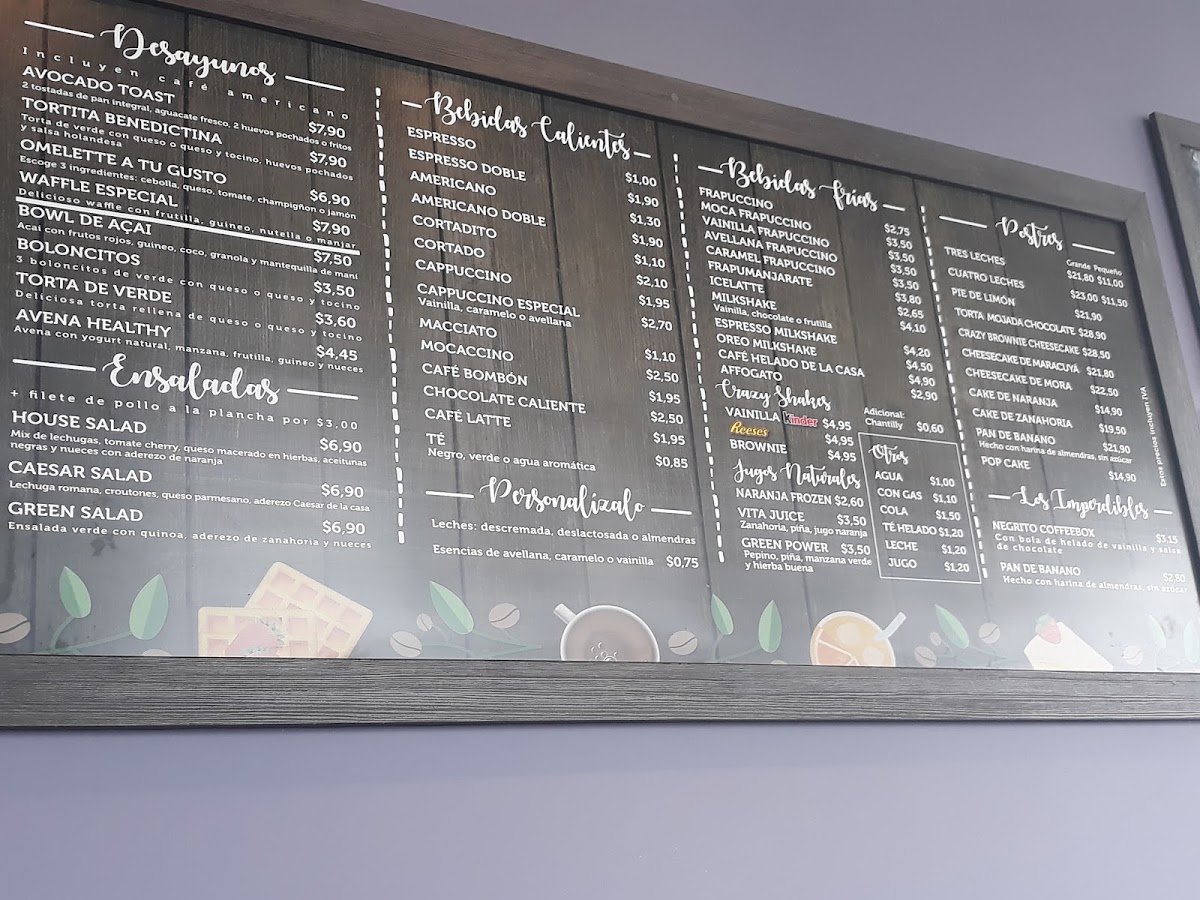 Desayunos
Incluyen café americano
AVOCADO TOAST
2 tostadas de pan integral, aguacate fresco, 2 huevos pochados o fritos
$7,90
TORTITA BENEDICTINA
Torta de verde con queso o queso y tocino, huevos pochados
y salsa holandesa
$7,90
OMELETTE A TU GUSTO
Escoge 3 ingredientes: cebolla, queso, tomate, champigñon o jamón
$6,90
WAFFLE ESPECIAL
Delicioso waffle con frutilla, guineo, nutella o manjar
$7,90
BOWL DE AÇAI
Acai con frutos rojos, guineo, coco, granola y mantequilla de maní
$7,50
BOLONCITOS
3 boloncitos de verde con queso o queso y tocino
$3,50
TORTA DE VERDE
Deliciosa torta rellena de queso o queso y tocino
$3,60
AVENA HEALTHY
Avena con yogurt natural, manzana, frutilla, guineo y nueces
$4,45
Ensaladas
+ filete de pollo a la plancha por $3.00
HOUSE SALAD
$6,90
Mix de lechugas, tomate cherry, queso macerado en hierbas, aceitunas
negras y nueces con aderezo de naranja
CAESAR SALAD
$6,90
Lechuga romana, croutones, queso parmesano, aderezo Caesar de la casa
GREEN SALAD
$6,90
Ensalada verde con quinoa, aderezo de zanahoria y nueces
Bebidas Calientes
ESPRESSO $1,00
ESPRESSO DOBLE $1,90
AMERICANO $1,30
AMERICANO DOBLE $1,90
CORTADITO $1,10
CORTADO $2,10
CAPPUCCINO $1,95
CAPPUCCINO ESPECIAL $2,70
Vainilla, caramelo o avellana
MACCIATO $1,10
MOCACCINO $2,50
CAFÉ BOMBÓN $1,95
CHOCOLATE CALIENTE $2,50
CAFÉ LATTE $1,95
TÉ $0,85
Negro, verde o agua aromática
Personalízalo
Leches: descremada, deslactosada o almendras
Esencias de avellana, caramelo o vainilla $0,75
Bebidas frías
FRAPUCCINO $2,75
MOCA FRAPUCCINO $3,50
VAINILLA FRAPUCCINO $3,50
AVELLANA FRAPUCCINO $3,50
CARAMEL FRAPUCCINO $3,50
FRAPUMANJARATE $3,80
ICELATTE $2,65
MILKSHAKE $4,10
Vainilla, chocolate o frutilla
ESPRESSO MILKSHAKE $4,20
OREO MILKSHAKE $4,50
CAFÉ HELADO DE LA CASA $4,90
AFFOGATO $2,90
Crazy Shakes
VAINILLA kinder $4,95
Reese's $4,95
BROWNIE $4,95
Adicional:
Chantilly $0,60
Jugos Naturales
NARANJA FROZEN $2,60
VITA JUICE $3,50
Zanahoria, piña, jugo naranja
GREEN POWER $3,50
Pepino, piña, manzana verde
y hierba buena
Otros
AGUA $1,00
CON GAS $1,10
COLA $1,50
TÉ HELADO $1,20
LECHE $1,20
JUGO $1,20
Postres
Grande Pequeño
TRES LECHES $21,80 $11,00
CUATRO LECHES $23,00 $11,50
PIE DE LIMÓN $21,90
TORTA MOJADA CHOCOLATE $28,90
CRAZY BROWNIE CHEESECAKE $28,50
CHEESECAKE DE MARACUYÁ $21,80
CHEESECAKE DE MORA $22,50
CAKE DE NARANJA $14,90
CAKE DE ZANAHORIA $19,50
PAN DE BANANO $21,90
Hecho con harina de almendras, sin azúcar
POP CAKE $14,90
Estos precios incluyen IVA
Los Imperdibles
NEGRITO COFFEEBOX $3,15
Con bola de helado de vainilla y salsa
de chocolate
PAN DE BANANO $2,80
Hecho con harina de almendras, sin azúcar